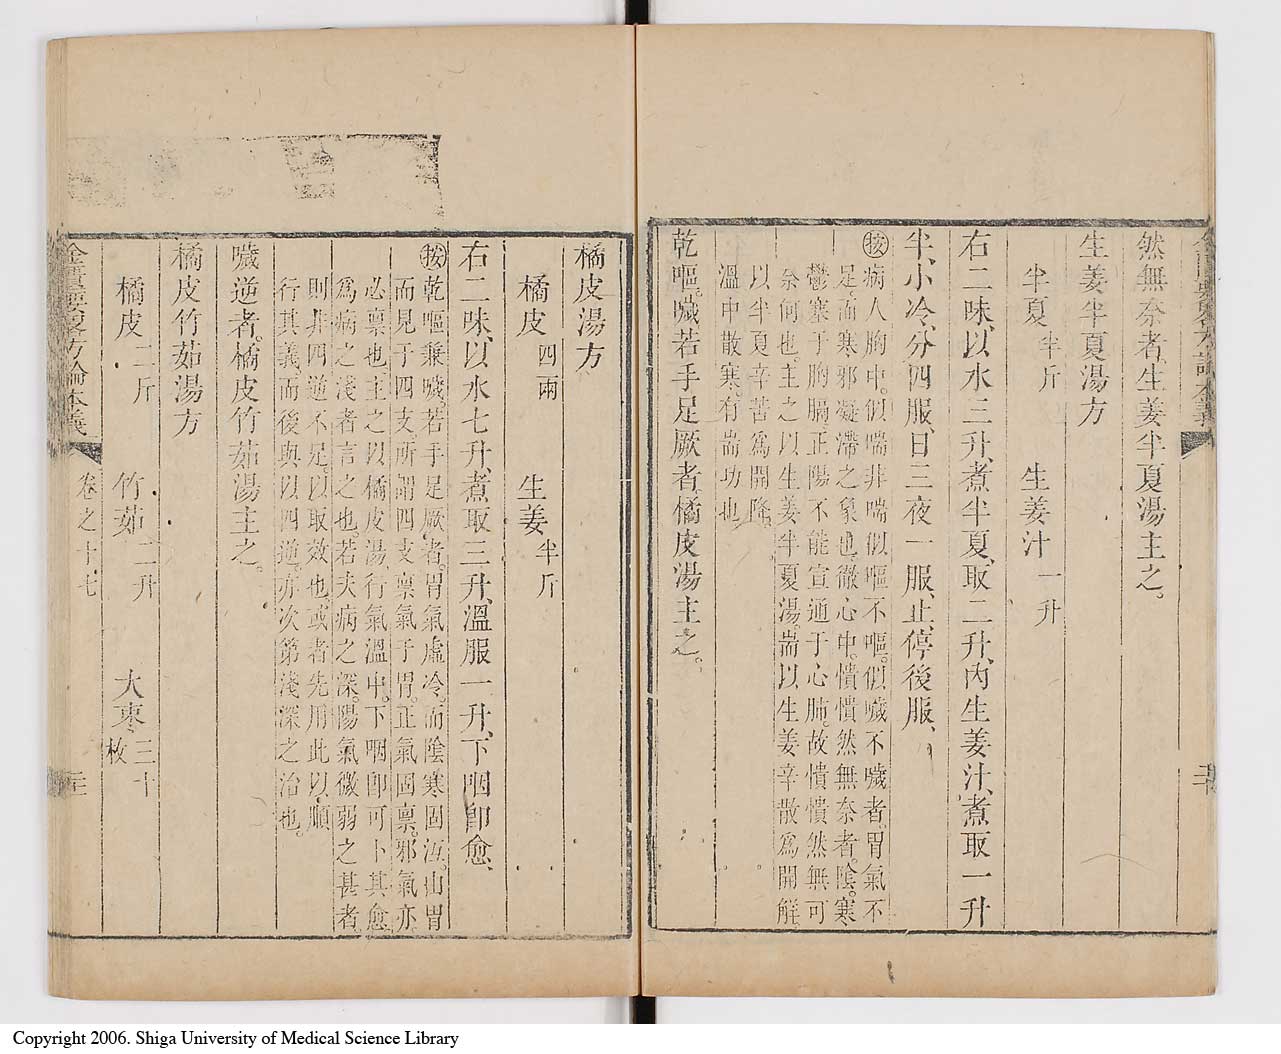 然無奈者。生姜半夏湯主之。
生姜半夏湯方
半夏半斤 生姜汁一升
右二味、以水三升、煮半夏、取二升、內生姜汁、煮取一升
半、小冷、分四服、日三夜一服、止、停後服、
按病人胸中。似喘非喘。似嘔不嘔。似噦不噦者。胃氣不
足。而寒邪凝滯之象也。徹心中。憒憒然無奈者。陰寒
鬱塞于胸膈。正陽不能宣通于心肺。故憒憒然無可
奈何也。主之以生姜半夏湯。耑以生姜辛散爲開解
以半夏辛苦爲開降。
溫中散寒。有耑功也
乾嘔。噦。若手足厥者。橘皮湯主之。
橘皮湯方
橘皮四兩 生姜半斤
右二味、以水七升、煮取三升、溫服一升、下咽卽愈、
按乾嘔兼噦。若手足厥者。胃氣虛冷。而陰寒固沍。由胃
而見于四支。所謂四支稟氣于胃。正氣固稟。邪氣亦
必稟也。主之以橘皮湯。行氣溫中。下咽卽可卜其愈
爲病之淺者言之也。若夫病之深。陽氣微弱之甚者
則非四逆不足。以取效也。或者先用此以順
行其義。而後與以四逆。亦次第淺深之治也。
噦逆者。橘皮竹茹湯主之。
橘皮竹茹湯方
橘皮二斤 竹茹二升 大棗三十枚
金匱要畧方論本義 卷之十七
Copyright 2006. Shiga University of Medical Science Library